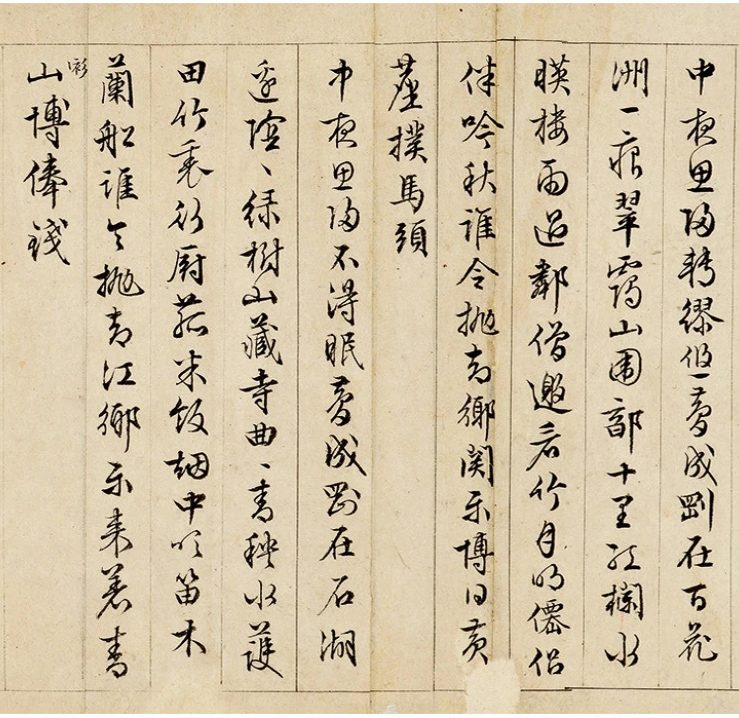 中夜思歸轉繆悠夢成剛在百花
洲一痕翠靄山圍郭十里紅欄水
暎樓雨過鄰僧邀看竹月明僊侶
伴吟秋誰令拋却鄉關樂博得黃
塵撲馬頭
中夜思歸不得眠夢成剛在石湖
邊陰〻綠樹山藏寺曲〻青秧水護
田竹裏行廚菰米飯烟中吹笛木
蘭船誰令拋却江鄉樂來著青
衫
山博俸錢